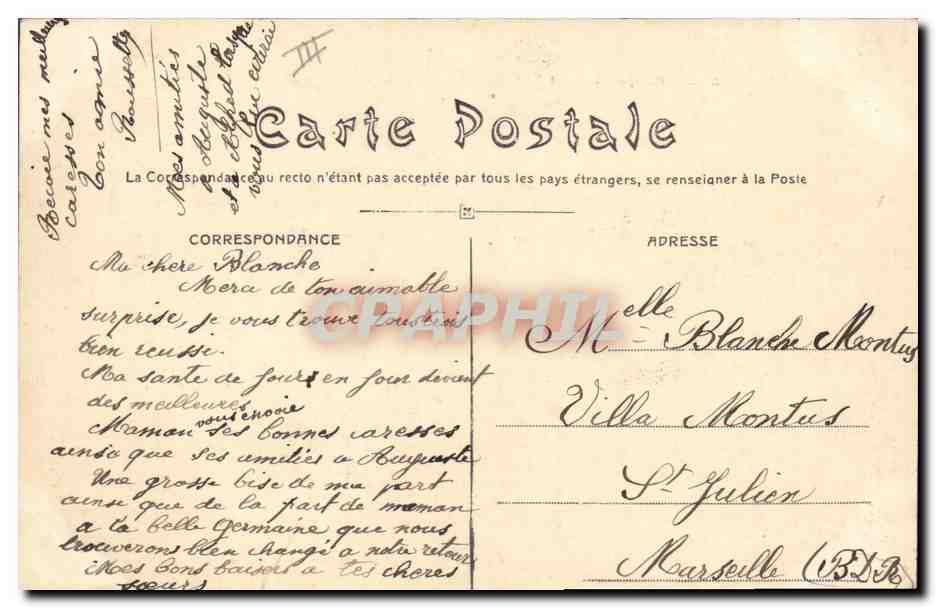 III
Carte Postale
La Correspondance au recto n'étant pas acceptée par tous les pays étrangers, se renseigner à la Poste
CORRESPONDANCE
Ma chere Blanche
Merci de ton aimable
surprise, je vous trouve tous trois
bien reussi.
Ma sante de jours en jour devient
des meilleures
Maman vous envoie ses bonnes caresses
ainsi que ses amities a Auguste
Une grosse bise de ma part
ainsi que de la part de maman
a ta belle Germaine que nous
trouverons bien changé a notre retour
Mes bons baisers a tes cheres
sœurs
Recoie mes meilleures
caresses
Ton amie
Mes amitiés
a Auguste
et a Alfred
vous
ADRESSE
Melle Blanche Montus
Villa Montus
St Julien
Marseille (B.D.R)
CPAPHIL